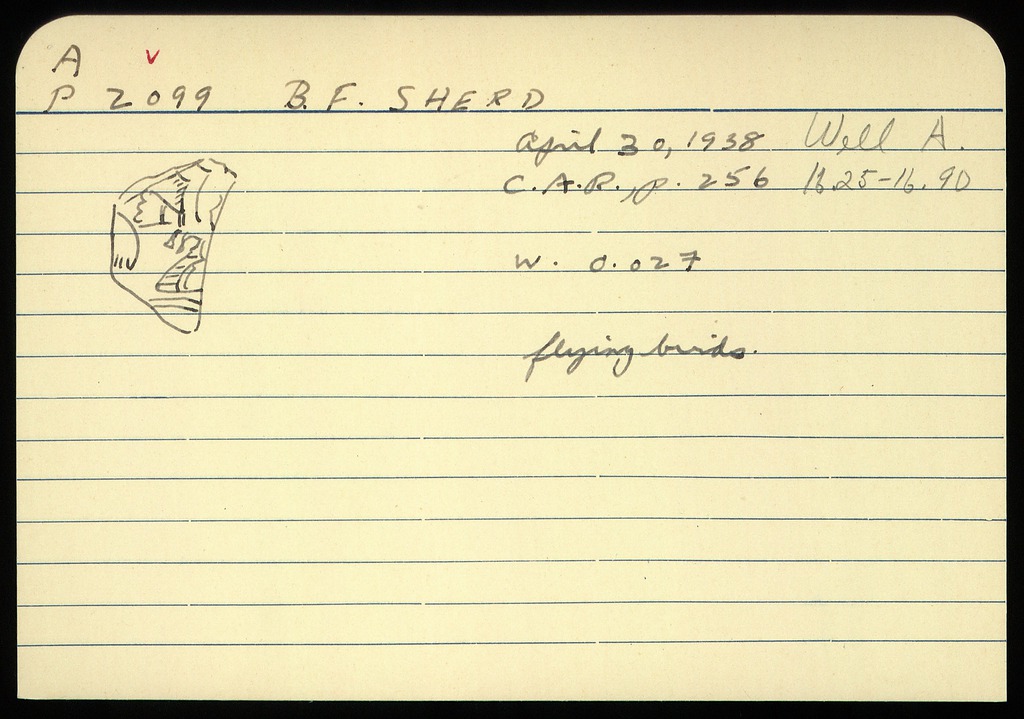 A v
P 2099 B.F. SHERD
April 30, 1938 Well A.
C.A.R., p. 256 16.25-16.90
W. 0.027
flying birds.